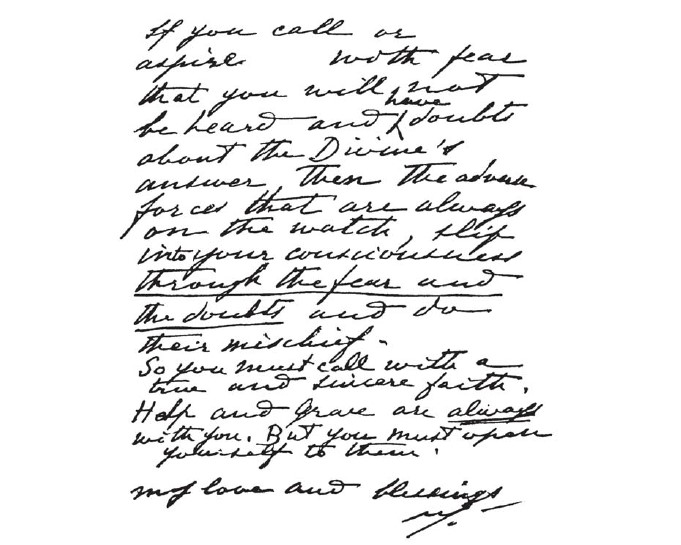 If you call or
aspire with fear
that you will not
be heard and have doubts
about the Divine's
answer, then the adverse
forces that are always
on the watch, slip
into your consciousness
through the fear and
the doubts and do
their mischief.
So you must call with a
true and sincere faith.
Help and Grace are always
with you. But you must open
yourself to them.
my love and blessings